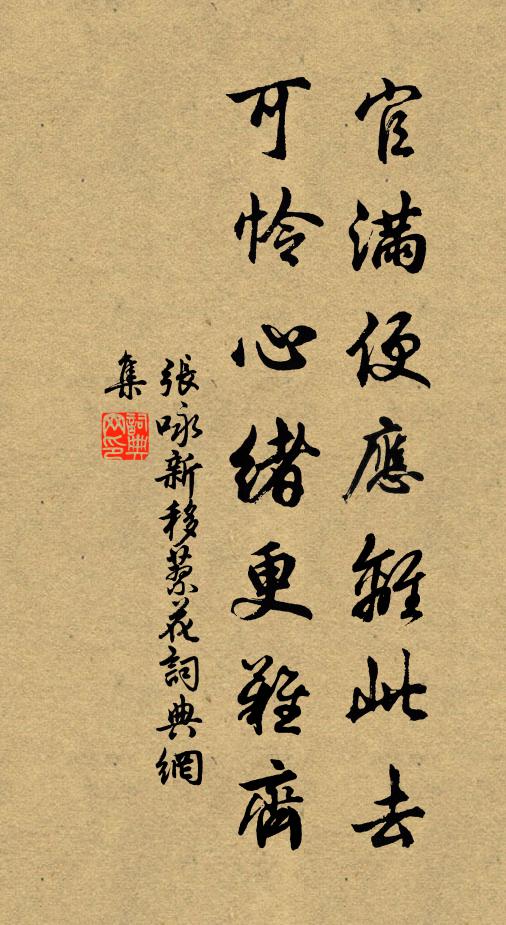 官滿便應離此去
可憐心緒更難齊
張咏新移蔡花詞典網
集
詞典網印